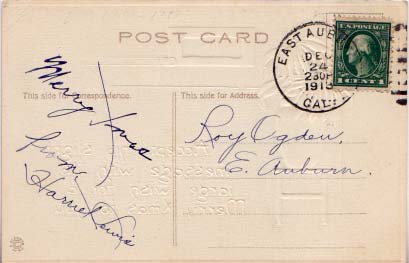 POST CARD
EAST AUB
DEC
24
230P
1913
CALIF
1 CENT 1
This side for Correspondence.
This side for Address.
Merry Xmas
from
Harriet Lewis
Roy Ogden,
E. Auburn.